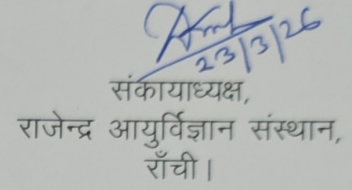 23/3/26
संकायाध्यक्ष,
राजेन्द्र आयुर्विज्ञान संस्थान,
राँची।